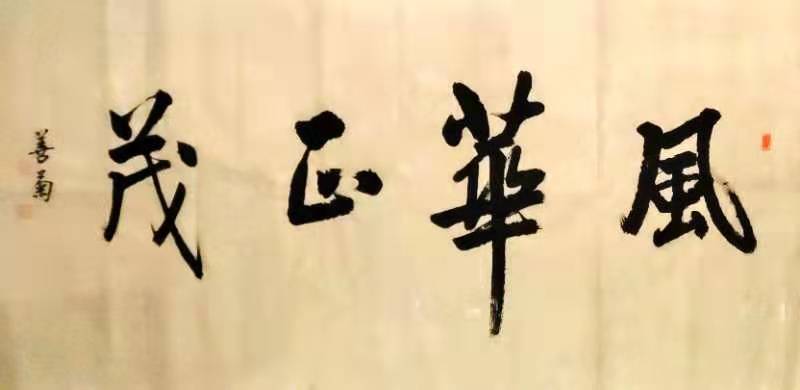 風華正茂
善菊